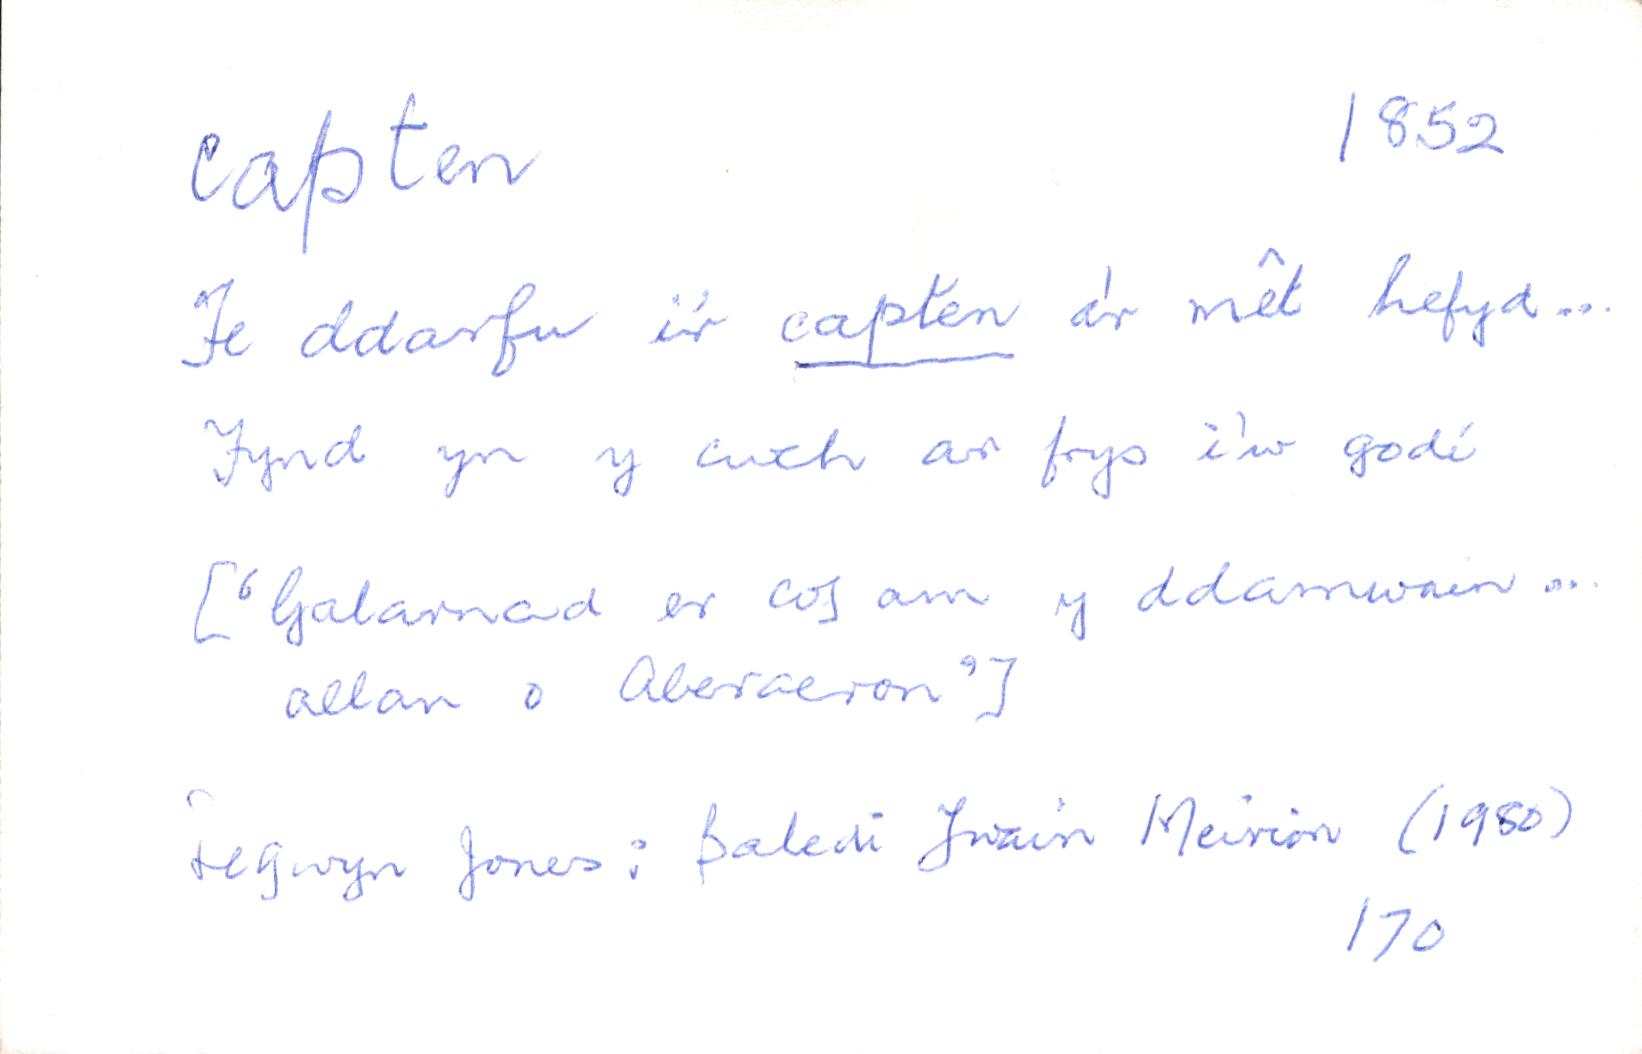 capten 1852
Fe ddarfu i'r capten a'r mêt hefyd...
Fynd yn y cwch ar frys i'w godi
['Galarnad er cof am y ddamwain...
allan o Aberaeron']
Tegwyn Jones: Baledi Ywain Meirion (1980)
170